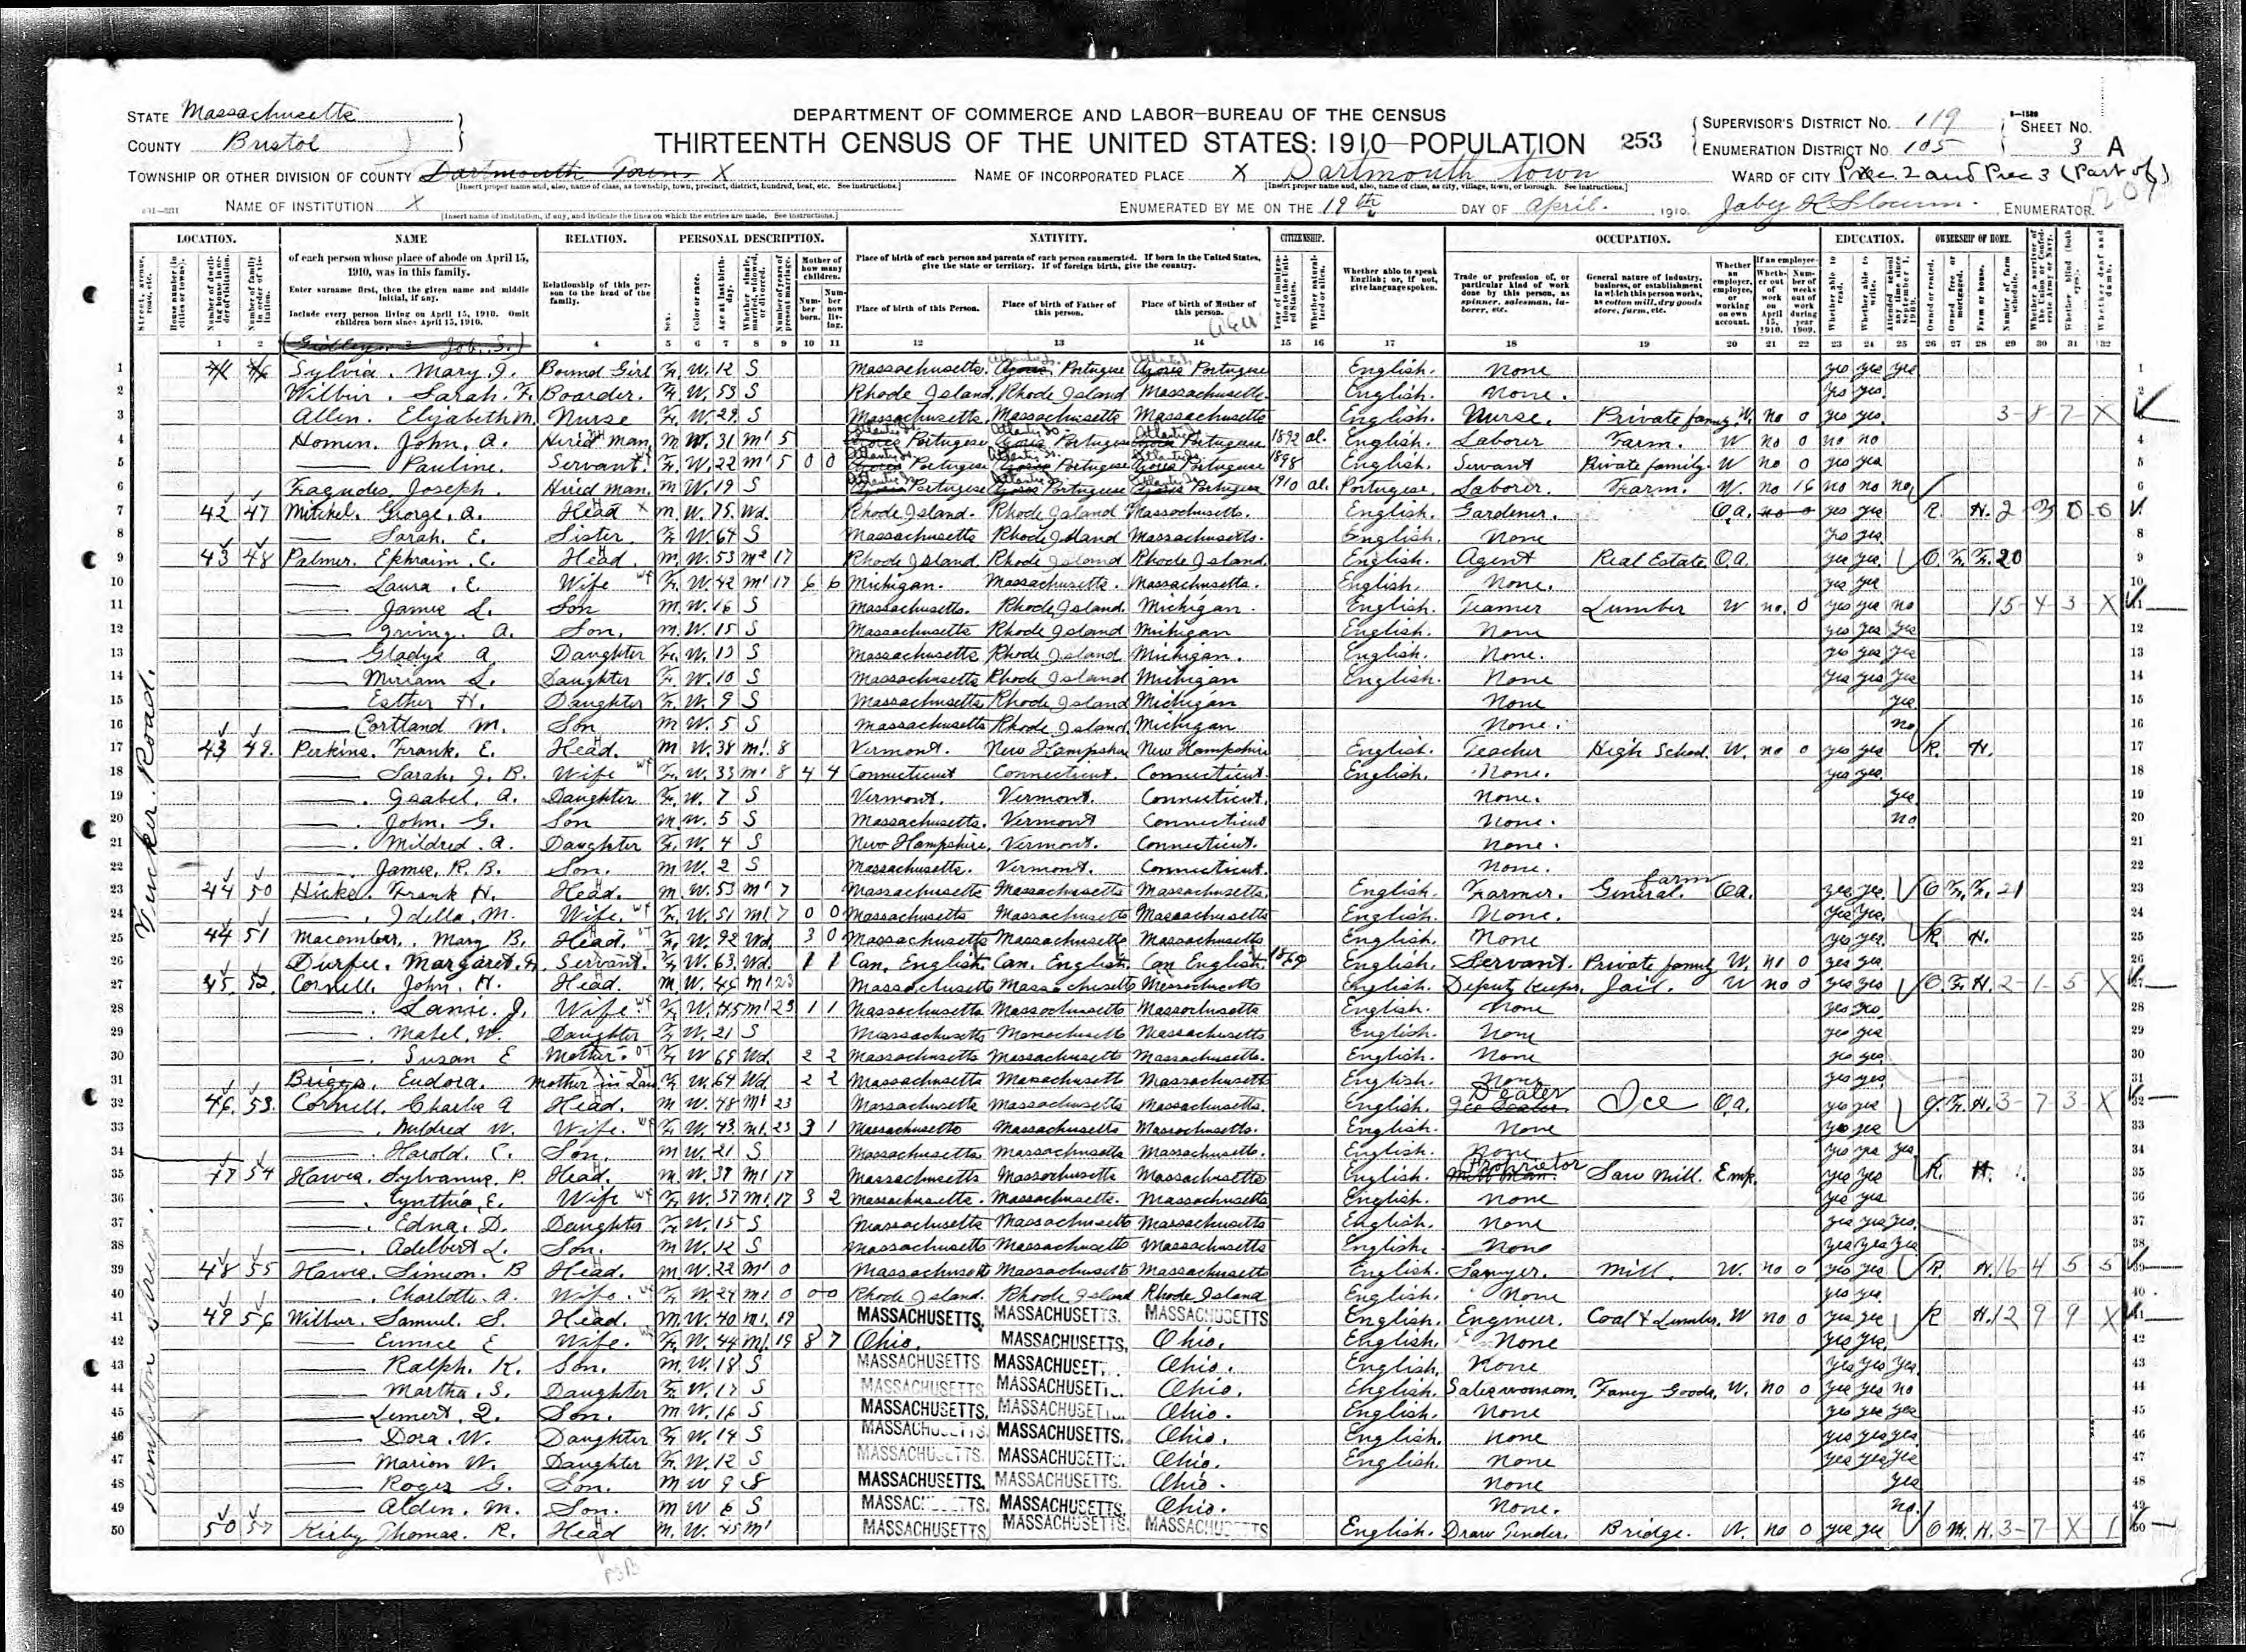 STATE Massachusetts
COUNTY Bristol
DEPARTMENT OF COMMERCE AND LABOR—BUREAU OF THE CENSUS
THIRTEENTH CENSUS OF THE UNITED STATES: 1910—POPULATION 253
SUPERVISOR'S DISTRICT No. 119
ENUMERATION DISTRICT No. 105
SHEET No. 3 A
TOWNSHIP OR OTHER DIVISION OF COUNTY Dartmouth Town X
NAME OF INCORPORATED PLACE X Dartmouth Town
WARD OF CITY Prec. 2 and Prec 3 (Part of)
NAME OF INSTITUTION X
ENUMERATED BY ME ON THE 19th DAY OF April. 1910. ENUMERATOR.
LOCATION. NAME RELATION. PERSONAL DESCRIPTION. NATIVITY. CITIZENSHIP. OCCUPATION. EDUCATION. OWNERSHIP OF HOME.
of each person whose place of abode on April 15, 1910, was in this family.
Enter surname first, then the given name and middle initial, if any.
Include every person living on April 15, 1910. Omit children born since April 15, 1910.
Relationship of this person to the head of the family.
Place of birth of each person and parents of each person enumerated. If born in the United States, give the state or territory. If of foreign birth, give the country.
Place of birth of this Person. Place of birth of Father of this person. Place of birth of Mother of this person.
Whether able to speak English; or, if not, give language spoken.
Trade or profession of, or particular kind of work done by this person, as spinner, salesman, laborer, etc.
General nature of industry, business, or establishment in which this person works, as cotton mill, dry goods store, farm, etc.
Tucker Road.
Kempston Street.
1 Sylvia. Mary J. Bound Girl F. W. 12 S Massachusetts. Portugese Portugese English. None yes yes yes
2 Wilbur. Sarah. F. Boarder. F. W. 53 S Rhode Island Rhode Island Massachusetts. English. None. yes yes
3 Allen. Elizabeth M. Nurse F. W. 29 S Massachusetts Massachusetts Massachusetts English. Nurse. Private family W. no 0 yes yes
4 Homen. John. A. Hired man M W. 31 M1 5 Portugese Portugese Portugese 1892 al. English. Laborer Farm. W no 0 no no
5 Pauline. Servant F. W. 22 M1 5 0 0 Portugese Portugese Portugese 1898 English. Servant Private family. W no 0 yes yes
6 Fagundes, Joseph. Hired man. M W. 19 S Portugese Portuguese Portugese 1910 al. Portugese. Laborer. Farm. W. no 16 no no no
7 42 47 Mitchel. George. A. Head M W. 75. Wd. Rhode Island. Rhode Island Massachusetts. English. Gardener. O.a. no 0 yes yes R. H.
8 Sarah. E. Sister F. W. 64 S Massachusetts Rhode Island Massachusetts. English. None yes yes
9 43 48 Palmer. Ephraim. C. Head M. W. 53 M2 17 Rhode Island Rhode Island Rhode Island English. Agent Real Estate O.a. yes yes O. F. F. 20
10 Laura. E. Wife F. W. 42 M1 17 6 6 Michigan. Massachusetts. Massachusetts. English. None. yes yes
11 James L. Son M. W. 16 S Massachusetts. Rhode Island. Michigan. English. Teamer Lumber W no. 0 yes yes no
12 Irving. A. Son. M. W. 15 S Massachusetts Rhode Island Michigan English. None yes yes yes
13 Gladys A Daughter F. W. 13 S Massachusetts Rhode Island Michigan. English. None. yes yes yes
14 Miriam L. Daughter F. W. 10 S Massachusetts Rhode Island Michigan English. None yes yes yes
15 Esther H. Daughter F. W. 9 S Massachusetts Rhode Island Michigan None yes
16 Cortland M. Son M W. 5 S Massachusetts Rhode Island. Michigan None. no
17 43 49. Perkins. Frank. E. Head. M W. 38 M1. 8 Vermont. New Hampshire New Hampshire English. Teacher High School. W. no 0 yes yes R. H.
18 Sarah. J. B. Wife F. W. 33 M1 8 4 4 Connecticut Connecticut. Connecticut. English. None. yes yes.
19 Isabel. A. Daughter F. W. 7 S Vermont. Vermont. Connecticut. None. yes
20 John. G. Son M. W. 5 S Massachusetts. Vermont Connecticut None. no
21 Mildred. A. Daughter F. W. 4 S New Hampshire. Vermont. Connecticut. None.
22 James. R. B. Son. M W. 2 S Massachusetts. Vermont. Connecticut. None.
23 44 50 Hicks. Frank H. Head. M. W. 53 M1 7 Massachusetts Massachusetts Massachusetts. English. Farmer. General farm O.a. yes yes O F. F. 21
24 Idella. M. Wife. F. W. 51 M1. 7 0 0 Massachusetts Massachusetts Massachusetts English. None. yes yes.
25 44 51 Macomber. Mary B. Head. F. W. 92 Wd. 3 0 Massachusetts Massachusetts Massachusetts English. None yes yes. R. H.
26 Durfee. Margaret. Servant. F. W. 63. Wd. 1 1 Can. English. Can. English. Can English. 1869 English. Servant. Private family W. no 0 yes yes
27 45. 52. Cornell. John. H. Head. M W. 46 M1 23 Massachusetts Massachusetts Massachusetts English. Deputy keeper. Jail. W no 0 yes yes O. F. H.
28 J. Wife F. W. 45 M1 23 1 1 Massachusetts Massachusetts Massachusetts English. None yes yes.
29 Mabel. W. Daughter F. W. 21 S Massachusetts Massachusetts Massachusetts English. None yes yes
30 Susan E Mother. F W 69 Wd. 2 2 Massachusetts Massachusetts Massachusetts. English. None yes yes
31 Briggs. Eudora. Mother in Law F. W. 64 Wd 2 2 Massachusetts Massachusetts Massachusetts English. None yes yes
32 46. 53. Cornell. Charles A Head. M W. 48 M1 23 Massachusetts Massachusetts Massachusetts. English. Dealer Ice O.a. yes yes O. F. H.
33 Mildred W. Wife. F. W. 43 M1. 23 3 1 Massachusetts Massachusetts Massachusetts. English. None yes yes
34 Harold. C. Son. M W. 21 S Massachusetts Massachusetts Massachusetts. English. None yes yes yes
35 47 54 Hawes. Sylvanus. P. Head. M. W. 39 M1 17 Massachusetts Massachusetts Massachusetts English. Proprietor Saw Mill. Emp. yes yes R. H.
36 Cynthia. E. Wife F. W. 37 M1. 17 3 2 Massachusetts. Massachusetts. Massachusetts English. None yes yes
37 Edna. D. Daughter F. W. 15 S Massachusetts Massachusetts Massachusetts English. None yes yes yes.
38 Adelbert L. Son. M W. 12 S Massachusetts Massachusetts Massachusetts English. None yes yes yes
39 48 55 Hawes. Simeon. B Head. M W. 22 M1 0 Massachusetts Massachusetts Massachusetts English. Sawyer. Mill. W. no 0 yes yes R. H.
40 Charlotte. A. Wife. F. W. 24 M1 0 0 0 Rhode Island. Rhode Island Rhode Island English. None yes yes.
41 49 56 Wilbur. Samuel. S. Head. M W. 40 M1. 19 MASSACHUSETTS. MASSACHUSETTS. MASSACHUSETTS English. Engineer. Coal & Lumber. W no 0 yes yes R H.
42 Eunice E Wife. F. W. 44 M1. 19 8 7 Ohio. MASSACHUSETTS. Ohio. English. None yes yes.
43 Ralph. K. Son. M. W. 18 S MASSACHUSETTS MASSACHUSETTS Ohio. English. None yes yes yes
44 Martha. S. Daughter F. W. 17 S MASSACHUSETTS MASSACHUSETTS Ohio. English. Saleswoman. Fancy Goods. W. no 0 yes yes no
45 Son. M W. 16 S MASSACHUSETTS. MASSACHUSETTS Ohio. English. None yes yes yes
46 Dora. W. Daughter F. W. 14 S MASSACHUSETTS. MASSACHUSETTS. Ohio. English. None yes yes yes.
47 Marion W. Daughter F. W. 12 S MASSACHUSETTS. MASSACHUSETTS. Ohio. English. None yes yes yes
48 Roger G. Son. M W 9 S MASSACHUSETTS. MASSACHUSETTS. Ohio. None yes
49 Alden. M. Son. M W 6 S MASSACHUSETTS. MASSACHUSETTS. Ohio. None. no.
50 50 57 Kirby Thomas. R. Head M. W. 45 M1 MASSACHUSETTS MASSACHUSETTS. MASSACHUSETTS English. Draw Tender. Bridge. W. no 0 yes yes O M. H.